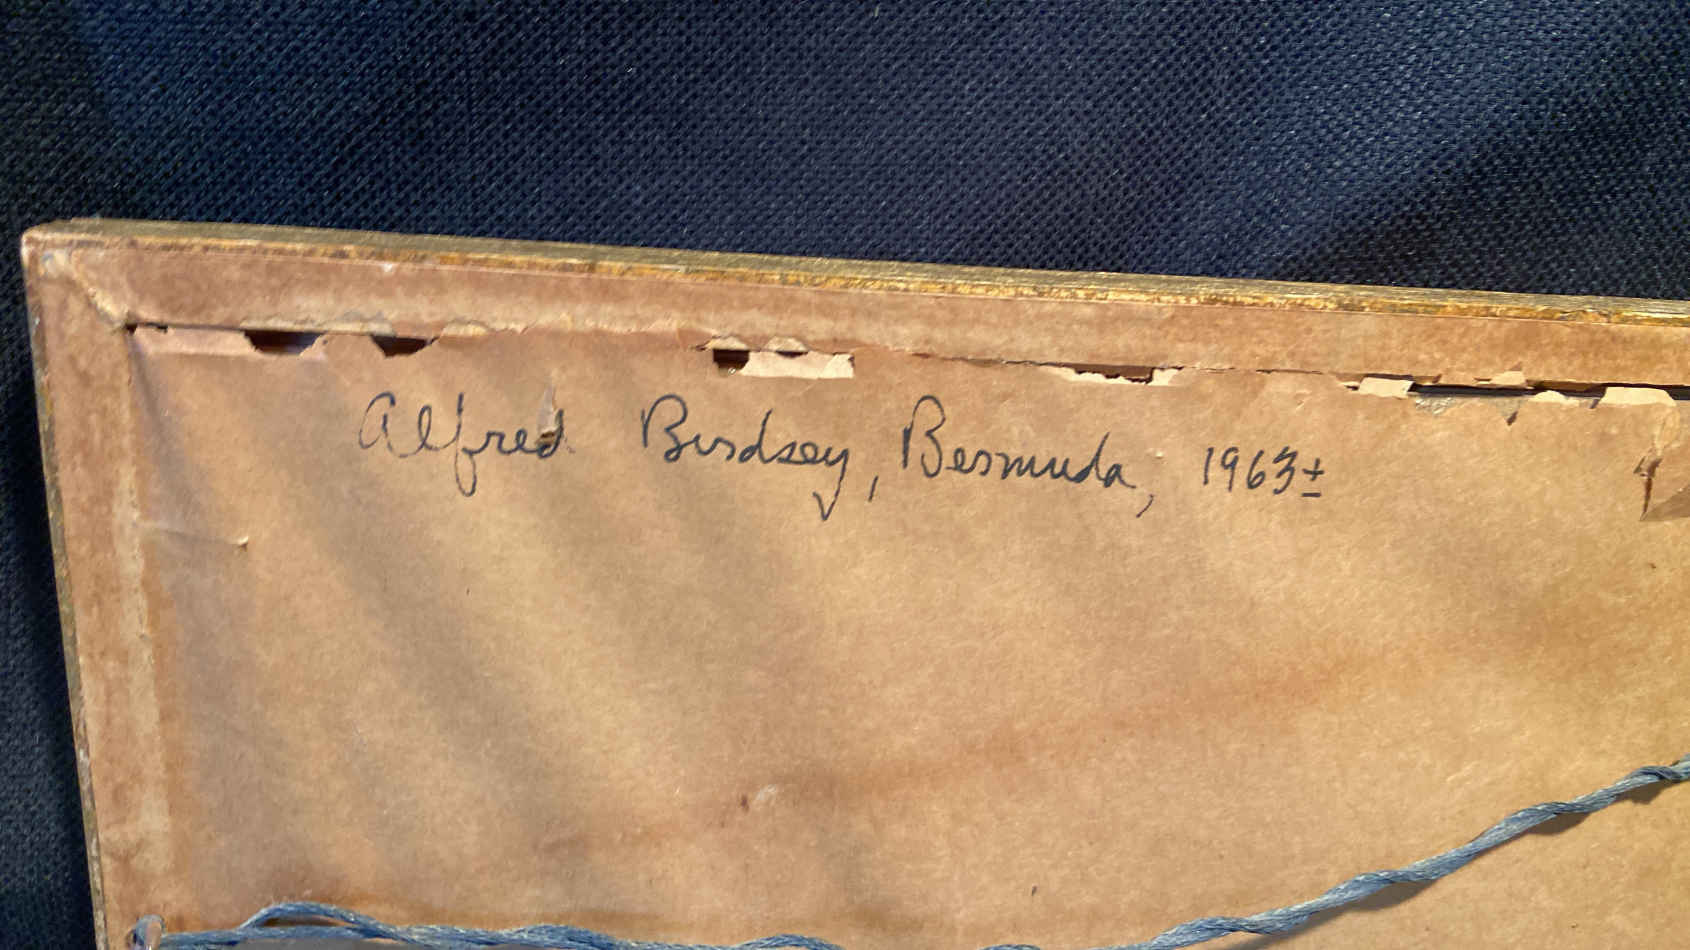 Alfred Birdsey, Bermuda, 1963±